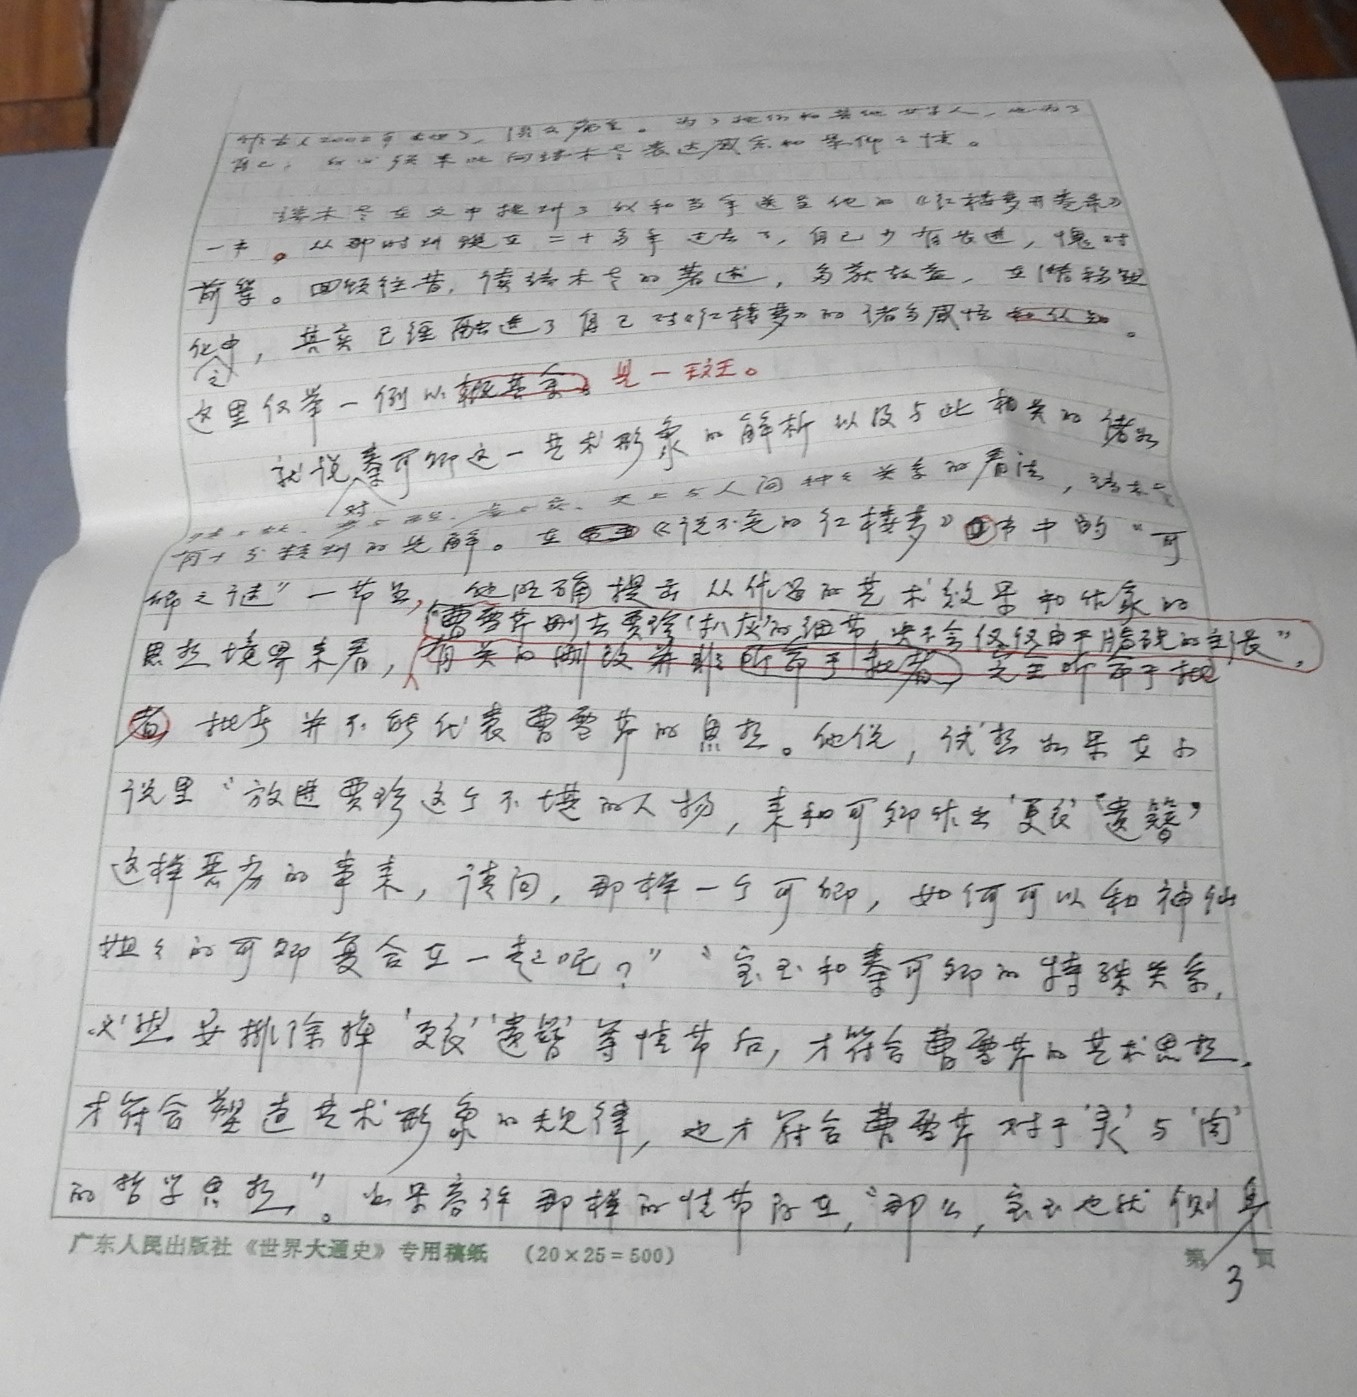 表达感念和景仰之情。
端木老在文中提到了叙和当年送呈他的《红楼梦开卷录》
一书。从那时到现在二十多年过去了，自己少有长进，愧对
前辈。回顾往昔，读端木老的著述，多获教益，在潜移默
化之中，其实已经融进了自己对《红楼梦》的诸多感悟。
这里仅举一例以见一斑。
就说对秦可卿这一艺术形象的解析以及与此相关的诸如
天上与人间种种关系的看法，端木老
有十分精到的见解。在《说不完的红楼梦》书中的“可
卿之谜”一节里，他明确提出从作品的艺术效果和作家的
“曹雪芹删去贾珍‘扒灰’的细节，决不会仅仅由于脂砚的主张”，
思想境界来看，有关的删改并非听命于批者，完全听命于批
者 批者并不能代表曹雪芹的思想。他说，试想如果在小
说里“放进贾珍这个不堪的人物，来和可卿作出‘更衣’‘遗簪’
这样恶劣的事来，请问，那样一个可卿，如何可以和神仙
姐々的可卿复合在一起呢？”“宝玉和秦可卿的特殊关系，
必然要排除掉‘更衣’‘遗簪’等情节后，才符合曹雪芹的艺术思想，
才符合塑造艺术形象的规律，也才符合曹雪芹对于‘灵’与‘肉’
的哲学思想”。如果容许那样的情节存在，“那么，宝玉也就侧身
广东人民出版社《世界大通史》专用稿纸 （20×25=500） 第3页